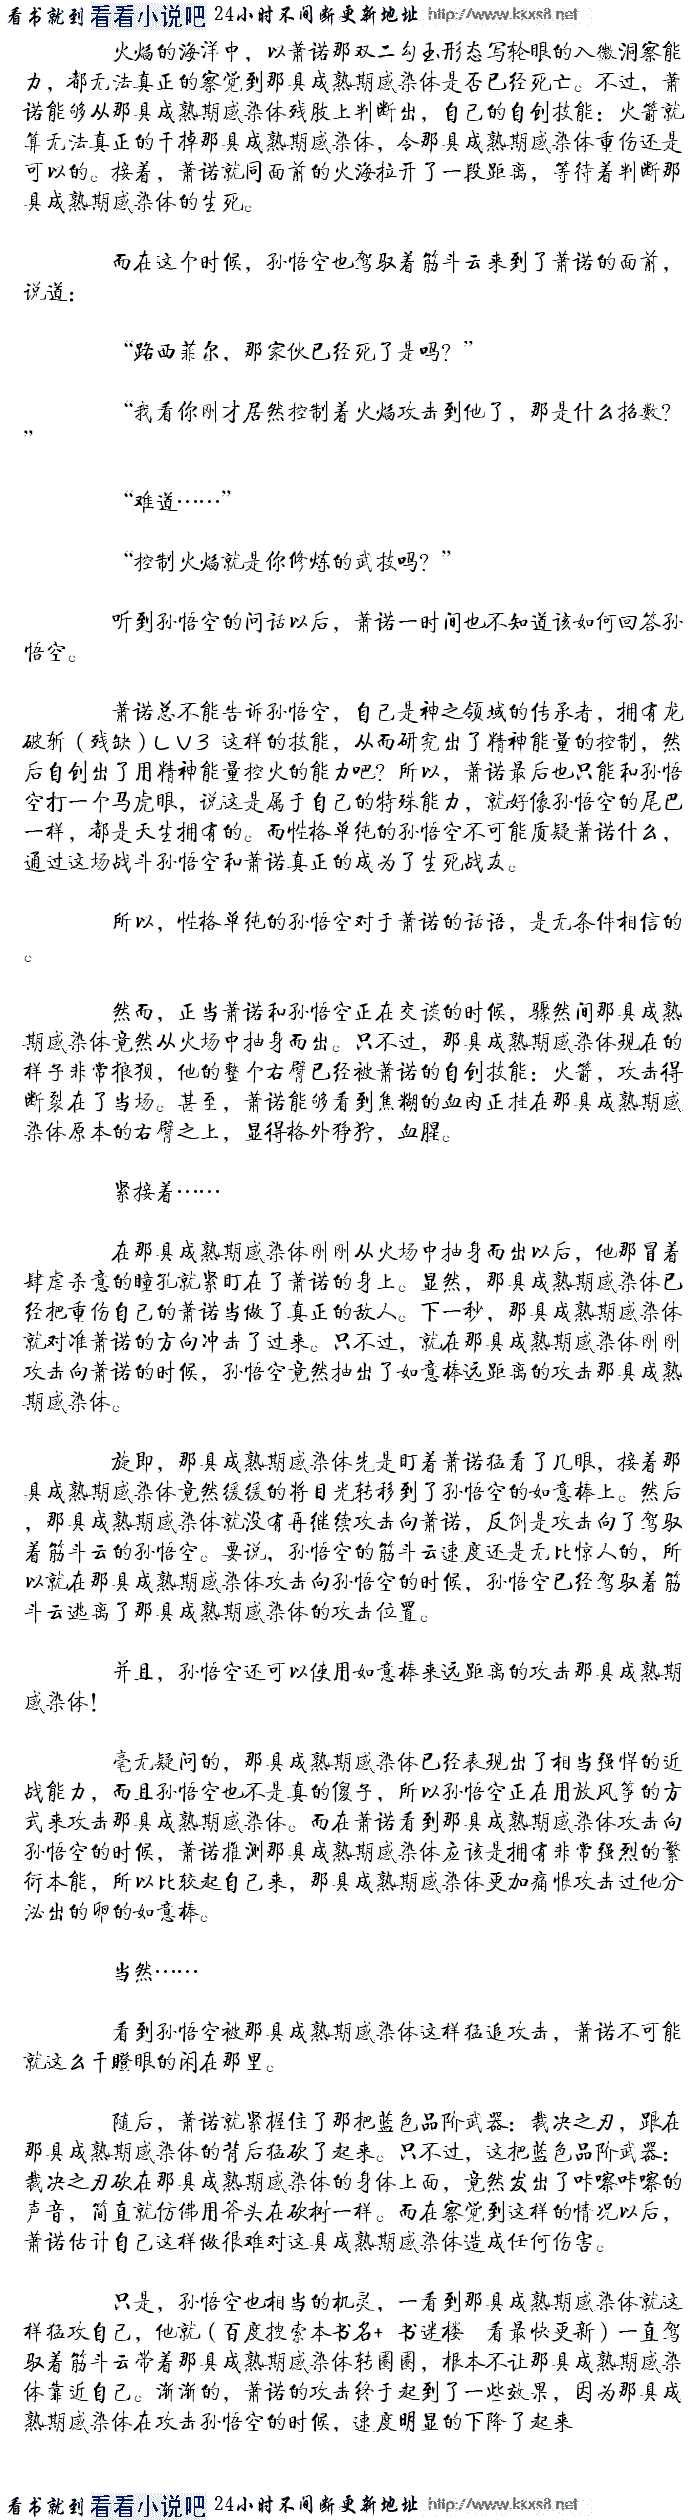 看书就到 看看小说吧 24小时不间断更新地址 http://www.kkxs8.net
火焰的海洋中，以萧诺那双二勾玉形态写轮眼的入微洞察能
力，都无法真正的察觉到那具成熟期感染体是否已经死亡。不过，萧
诺能够从那具成熟期感染体残肢上判断出，自己的自创技能：火箭就
算无法真正的干掉那具成熟期感染体，令那具成熟期感染体重伤还是
可以的。接着，萧诺就同面前的火海拉开了一段距离，等待着判断那
具成熟期感染体的生死。
而在这个时候，孙悟空也驾驭着筋斗云来到了萧诺的面前，
说道：
“路西菲尔，那家伙已经死了是吗？”
“我看你刚才居然控制着火焰攻击到他了，那是什么招数？
”
“难道……”
“控制火焰就是你修炼的武技吗？”
听到孙悟空的问话以后，萧诺一时间也不知道该如何回答孙
悟空。
萧诺总不能告诉孙悟空，自己是神之领域的传承者，拥有龙
破斩（残缺）LV3 这样的技能，从而研究出了精神能量的控制，然
后自创出了用精神能量控火的能力吧？所以，萧诺最后也只能和孙悟
空打一个马虎眼，说这是属于自己的特殊能力，就好像孙悟空的尾巴
一样，都是天生拥有的。而性格单纯的孙悟空不可能质疑萧诺什么，
通过这场战斗孙悟空和萧诺真正的成为了生死战友。
所以，性格单纯的孙悟空对于萧诺的话语，是无条件相信的
。
然而，正当萧诺和孙悟空正在交谈的时候，骤然间那具成熟
期感染体竟然从火场中抽身而出。只不过，那具成熟期感染体现在的
样子非常狼狈，他的整个右臂已经被萧诺的自创技能：火箭，攻击得
断裂在了当场。甚至，萧诺能够看到焦糊的血肉正挂在那具成熟期感
染体原本的右臂之上，显得格外狰狞，血腥。
紧接着……
在那具成熟期感染体刚刚从火场中抽身而出以后，他那冒着
肆虐杀意的瞳孔就紧盯在了萧诺的身上。显然，那具成熟期感染体已
经把重伤自己的萧诺当做了真正的敌人。下一秒，那具成熟期感染体
就对准萧诺的方向冲击了过来。只不过，就在那具成熟期感染体刚刚
攻击向萧诺的时候，孙悟空竟然抽出了如意棒远距离的攻击那具成熟
期感染体。
旋即，那具成熟期感染体先是盯着萧诺猛看了几眼，接着那
具成熟期感染体竟然缓缓的将目光转移到了孙悟空的如意棒上。然后
，那具成熟期感染体就没有再继续攻击向萧诺，反倒是攻击向了驾驭
着筋斗云的孙悟空。要说，孙悟空的筋斗云速度还是无比惊人的，所
以就在那具成熟期感染体攻击向孙悟空的时候，孙悟空已经驾驭着筋
斗云逃离了那具成熟期感染体的攻击位置。
并且，孙悟空还可以使用如意棒来远距离的攻击那具成熟期
感染体！
毫无疑问的，那具成熟期感染体已经表现出了相当强悍的近
战能力，而且孙悟空也不是真的傻子，所以孙悟空正在用放风筝的方
式来攻击那具成熟期感染体。而在萧诺看到那具成熟期感染体攻击向
孙悟空的时候，萧诺推测那具成熟期感染体应该是拥有非常强烈的繁
衍本能，所以比较起自己来，那具成熟期感染体更加痛恨攻击过他分
泌出的卵的如意棒。
当然……
看到孙悟空被那具成熟期感染体这样猛追攻击，萧诺不可能
就这么干瞪眼的闲在那里。
随后，萧诺就紧握住了那把蓝色品阶武器：裁决之刃，跟在
那具成熟期感染体的背后猛砍了起来。只不过，这把蓝色品阶武器：
裁决之刃砍在那具成熟期感染体的身体上面，竟然发出了咔嚓咔嚓的
声音，简直就仿佛用斧头在砍树一样。而在察觉到这样的情况以后，
萧诺估计自己这样做很难对这具成熟期感染体造成任何伤害。
只是，孙悟空也相当的机灵，一看到那具成熟期感染体就这
样猛攻自己，他就（百度搜索本书名+ 书迷楼 看最快更新）一直驾
驭着筋斗云带着那具成熟期感染体转圈圈，根本不让那具成熟期感染
体靠近自己。渐渐的，萧诺的攻击终于起到了一些效果，因为那具成
熟期感染体在攻击孙悟空的时候，速度明显的下降了起来
看书就到 看看小说吧 24小时不间断更新地址 http://www.kkxs8.net